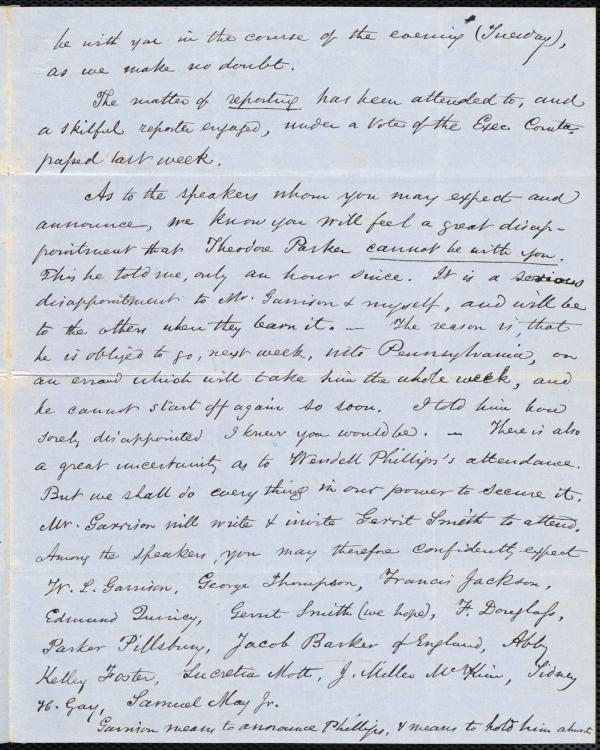 be with you in the course of the evening (Tuesday),
as we make no doubt.
The matter of reporting has been attended to, and
a skilful reporter engaged, under a vote of the Exec. Comtee
passed last week.
As to the speakers whom you may expect and
announce, we know you will feel a great disap-
pointment that Theodore Parker cannot be with you.
This he told me, only an hour since. It is a serious
disappointment to Mr. Garrison & myself, and will be
to the others when they learn it. — The reason is, that
he is obliged to go, next week, into Pennsylvania, on
an errand which will take him the whole week, and
he cannot start off again so soon. I told him how
sorely disappointed I knew you would be. — There is also
a great uncertainty as to Wendell Phillips's attendance.
But we shall do every thing in our power to secure it.
Mr. Garrison will write & invite Gerrit Smith to attend.
Among the speakers, you may therefore confidently expect
W. L. Garrison, George Thompson, Francis Jackson,
Edmund Quincy, Gerrit Smith (we hope), F. Douglass,
Parker Pillsbury, Jacob Barker of England, Abby
Kelley Foster, Lucretia Mott, J. Miller McKim, Sidney
H. Gay, Samuel May Jr.
Garrison means to announce Phillips, & means to hold him almost